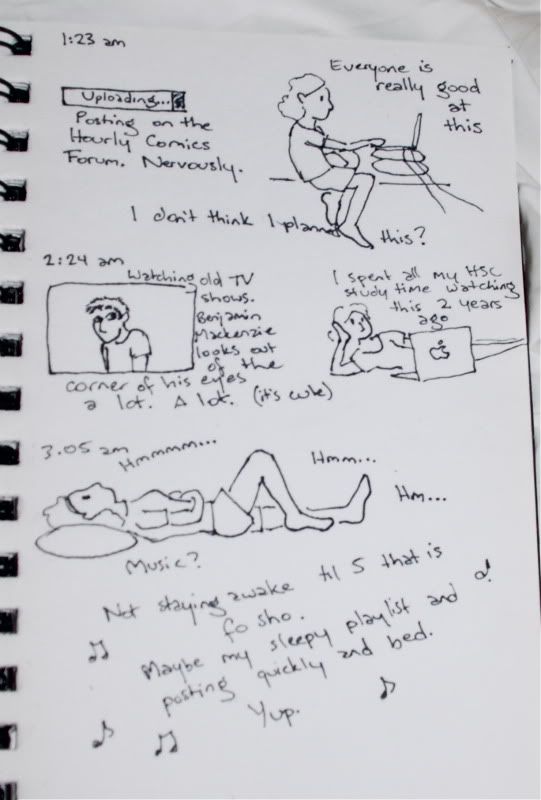 1:23 am
Uploading...
Posting on the
Hourly Comics
Forum. Nervously.
Everyone is
really good
at
this
I don't think I planned this?
2:24 am
Watching old TV
shows.
Benjamin
Mackenzie
looks out
of the
corner of his eyes
a lot. A lot. (it's cute)
I spent all my HSC
study time watching
this 2 years
ago
3.05 am
Hmmmm...
Hmm...
Hm...
Music?
Not staying awake til 5 that is
fo sho.
Maybe my sleepy playlist and
posting quickly and bed.
Yup.